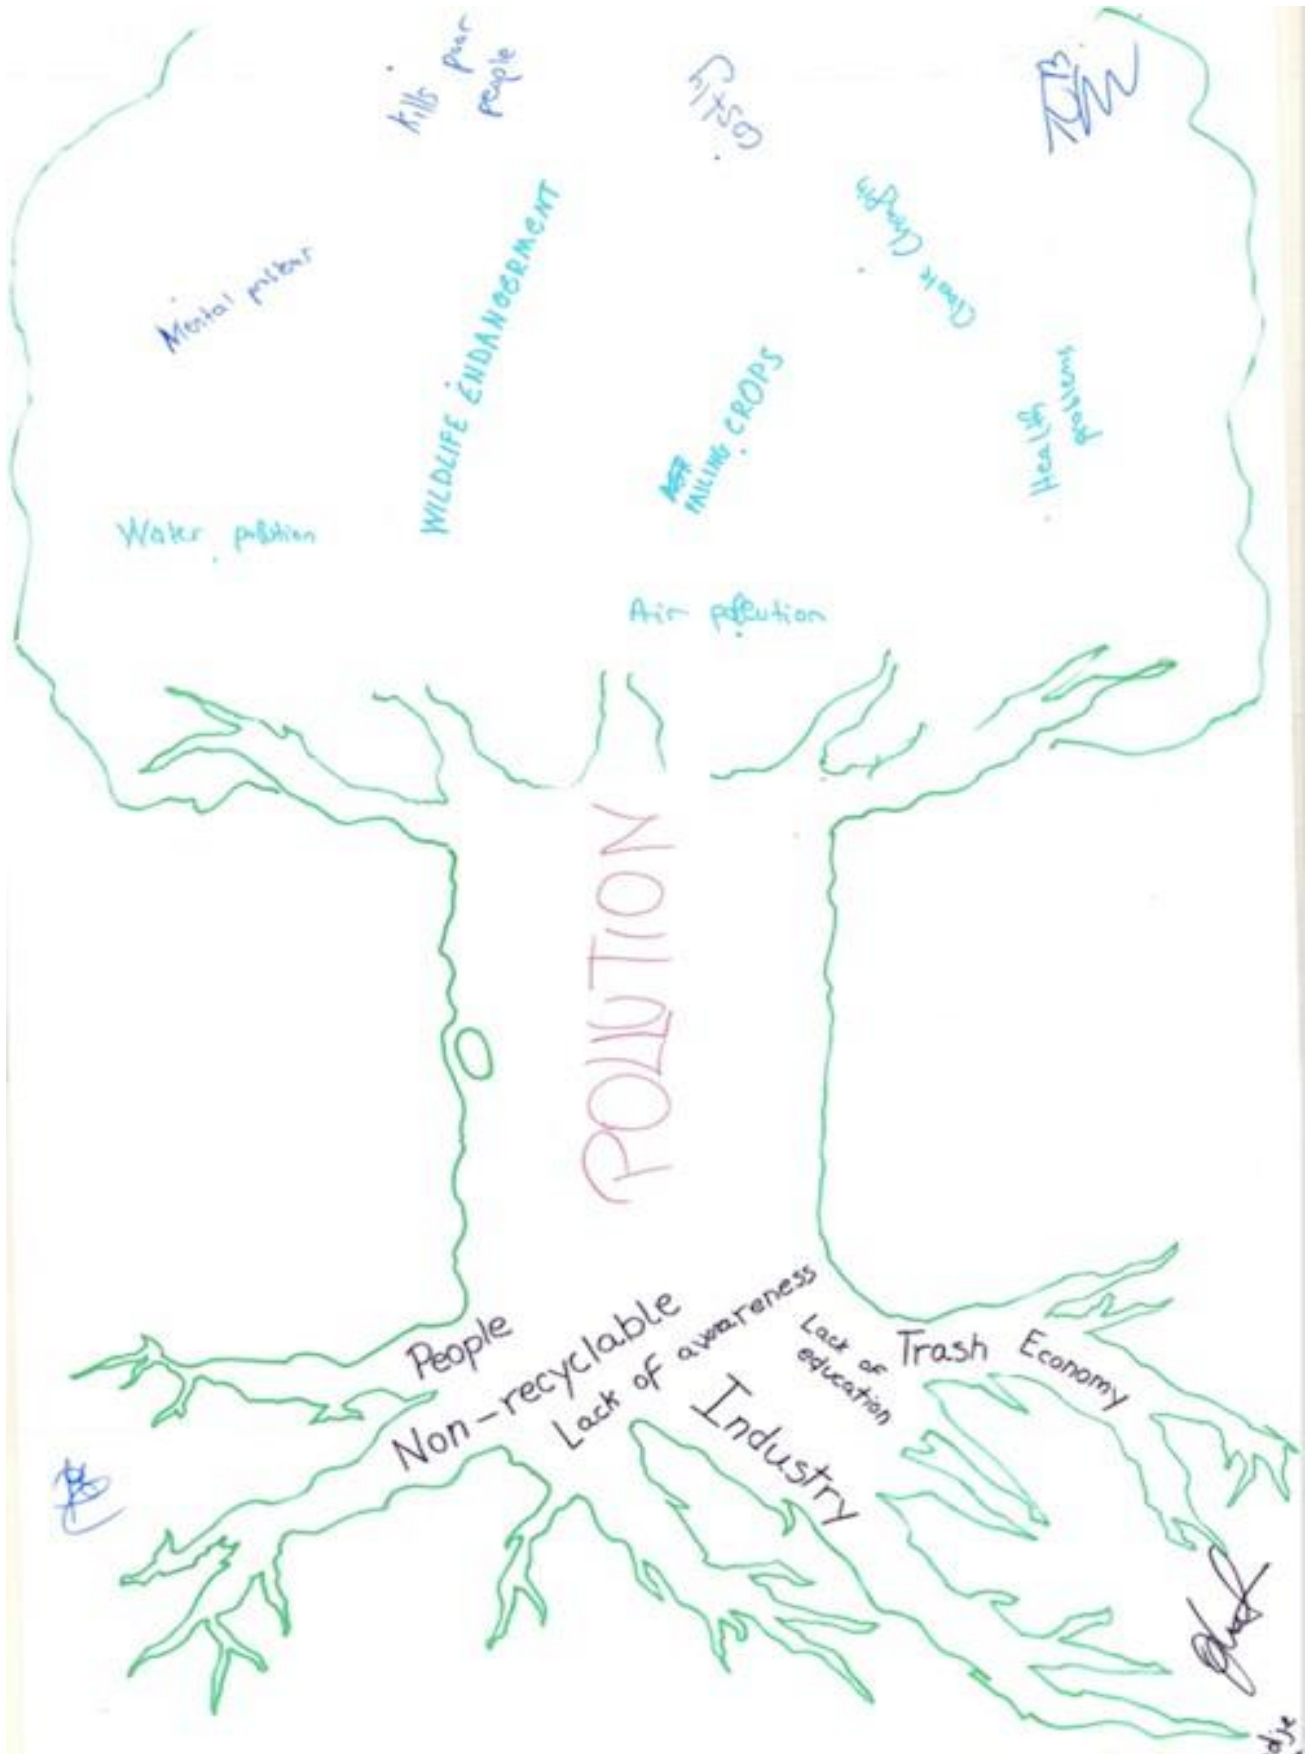 Kills poor
people
Costly
Mental
WILDLIFE ENDANGERMENT
Climate Changing
FAILING CROPS
Health
problems
Water pollution
Air pollution
POLLUTION
People
Non-recyclable
Lack of awareness
Lack of
education
Industry
Trash
Economy